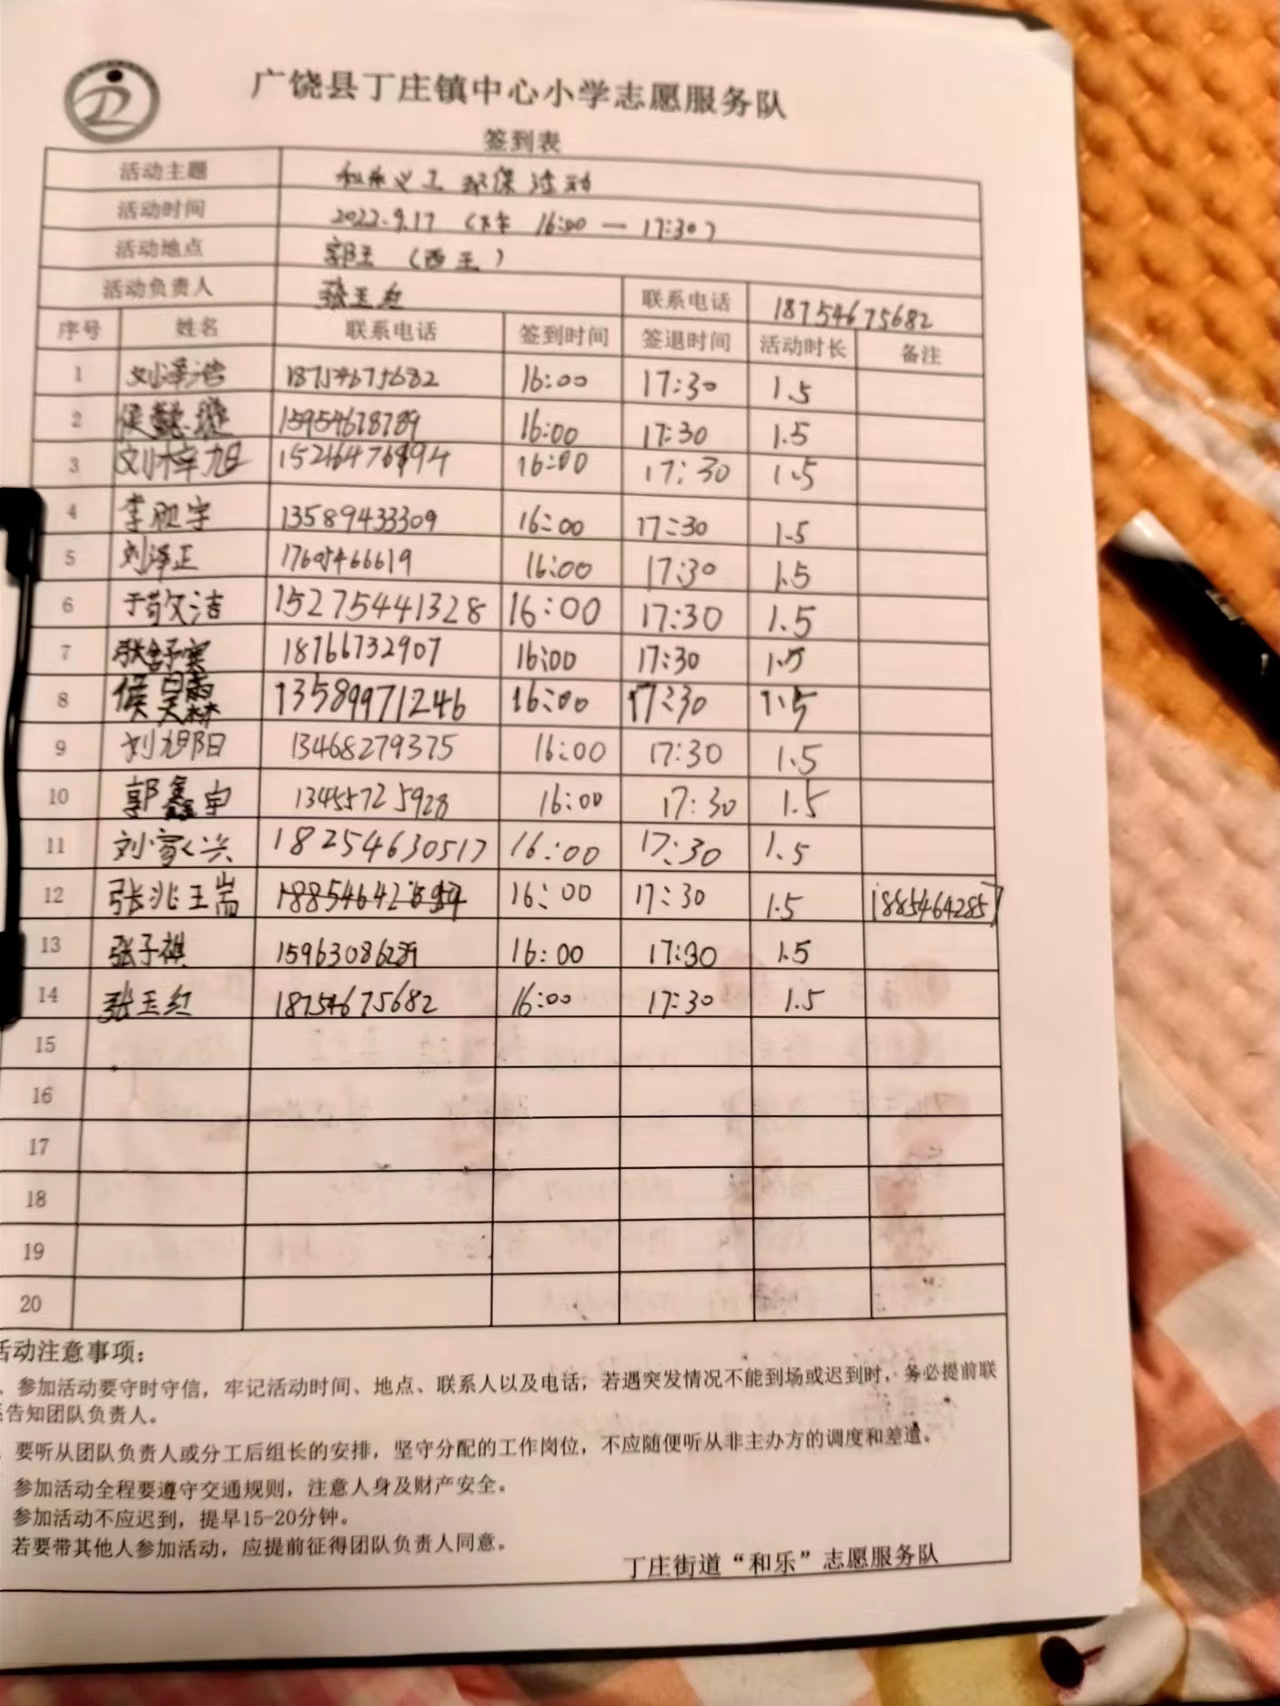 广饶县丁庄镇中心小学志愿服务队
签到表
活动主题 和乐义工 环保活动
活动时间 2022.9.17 (下午 16:00 — 17:30)
活动地点 郭王 (西王)
活动负责人 张玉红 联系电话 18754675682
序号 姓名 联系电话 签到时间 签退时间 活动时长 备注
1 刘泽浩 18754675682 16:00 17:30 1.5
2 侯懿璇 15954678789 16:00 17:30 1.5
3 刘梓旭 16:00 17:30 1.5
4 李 宇 13589433309 16:00 17:30 1.5
5 刘泽正 17605466619 16:00 17:30 1.5
6 于敬文洁 15275441328 16:00 17:30 1.5
7 张舒寒 18766732907 16:00 17:30 1.5
8 侯昊霖 13589971246 16:00 17:30 1.5
9 刘旭阳 13468279375 16:00 17:30 1.5
10 郭鑫宇 13455725928 16:00 17:30 1.5
11 刘家兴 18254630517 16:00 17:30 1.5
12 张兆王嵩 16:00 17:30 1.5 18854642857
13 张子祺 15963086289 16:00 17:30 1.5
14 张玉红 18754675682 16:00 17:30 1.5
15
16
17
18
19
20
活动注意事项:
、参加活动要守时守信，牢记活动时间、地点、联系人以及电话，若遇突发情况不能到场或迟到时，务必提前联
系告知团队负责人。
、要听从团队负责人或分工后组长的安排，坚守分配的工作岗位，不应随便听从非主办方的调度和差遣。
参加活动全程要遵守交通规则，注意人身及财产安全。
参加活动不应迟到，提早15-20分钟。
若要带其他人参加活动，应提前征得团队负责人同意。
丁庄街道“和乐”志愿服务队